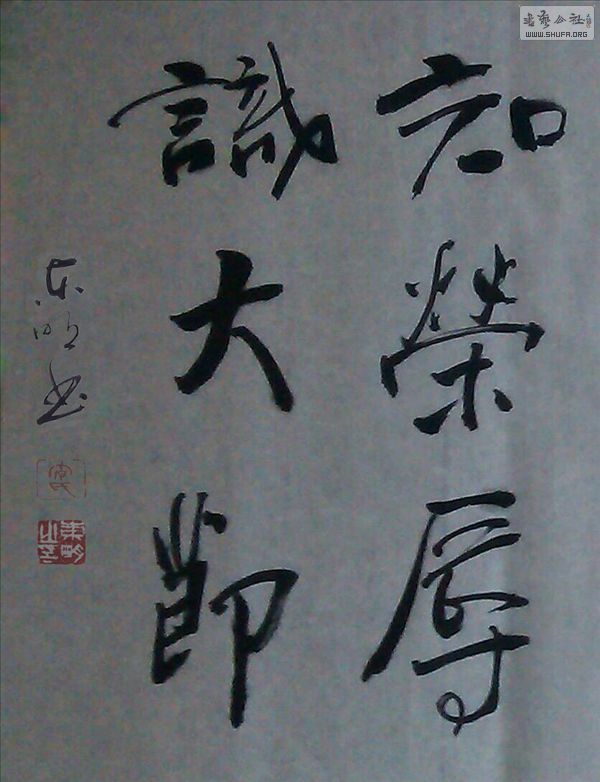 知榮辱
識大節
东明书
书艺公社
WWW.SHUFA.ORG